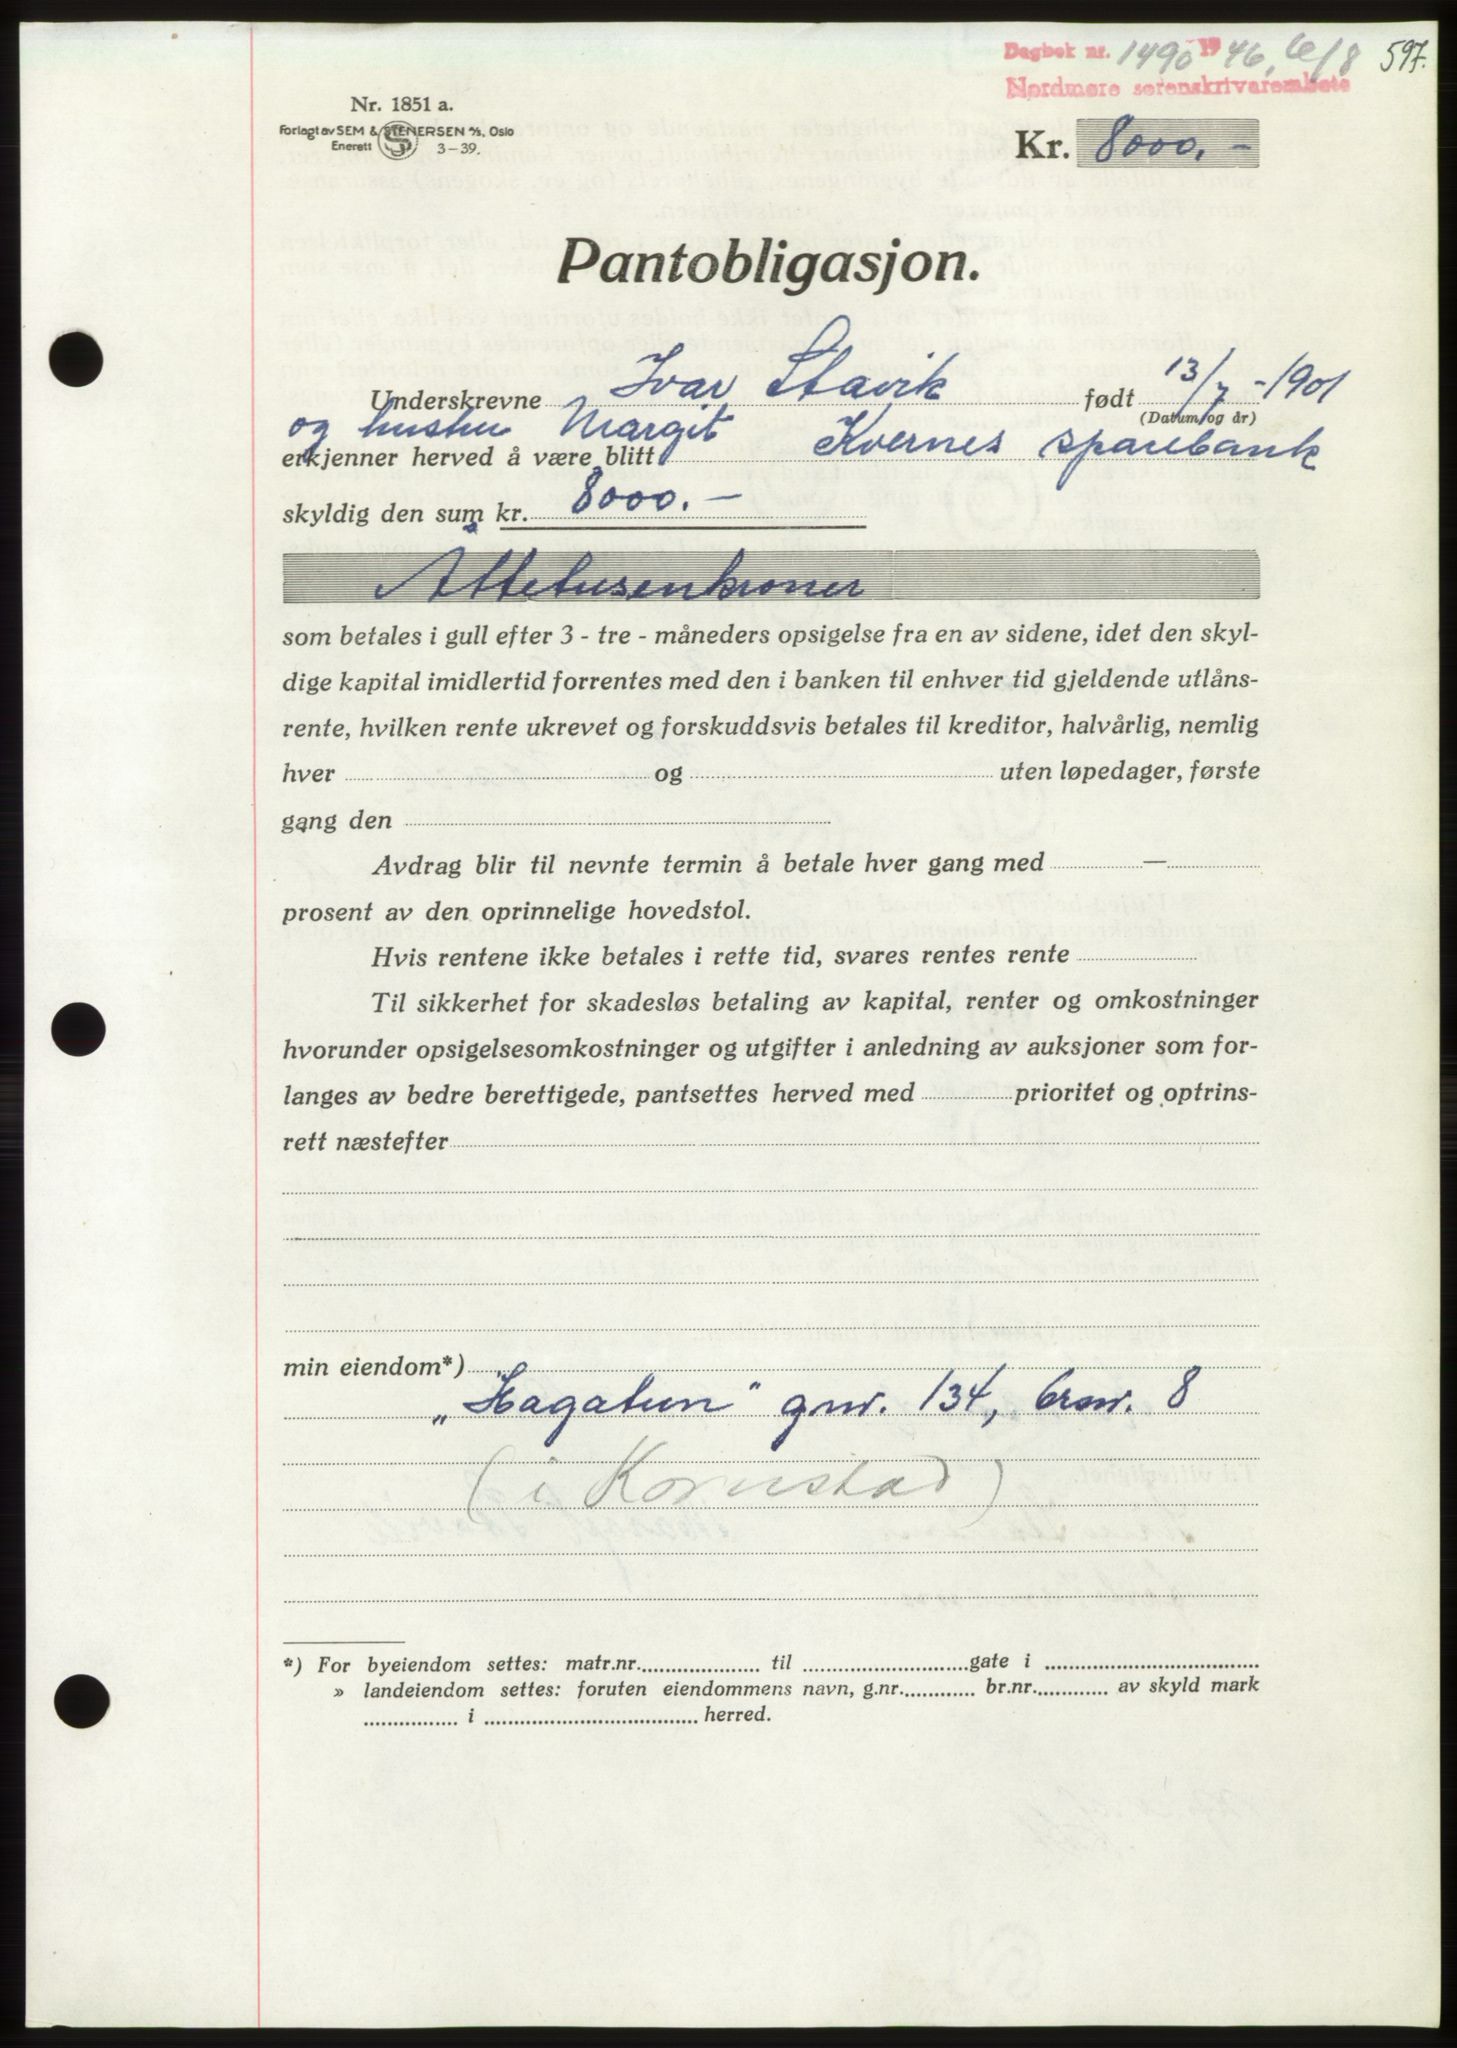 Dagbok nr. 1490 1946, 6/8 597.
Nordmøre sorenskrivarembete
Nr. 1851 a.
Forlagt av SEM & STENERSEN A/S, Oslo
Enerett 3-39.
Kr. 8000.-
Pantobligasjon.
Underskrevne Ivar Stavik født 13/7-1901
(Datum og år)
og hustru Margit Kvernes sparebank
erkjenner herved å være blitt
skyldig den sum kr. 8000.-
Åttetusenkroner
som betales i gull efter 3 - tre - måneders opsigelse fra en av sidene, idet den skyl-
dige kapital imidlertid forrentes med den i banken til enhver tid gjeldende utlåns-
rente, hvilken rente ukrevet og forskuddsvis betales til kreditor, halvårlig, nemlig
hver og uten løpedager, første
gang den
Avdrag blir til nevnte termin å betale hver gang med —
prosent av den oprinnelige hovedstol.
Hvis rentene ikke betales i rette tid, svares rentes rente
Til sikkerhet for skadesløs betaling av kapital, renter og omkostninger
hvorunder opsigelsesomkostninger og utgifter i anledning av auksjoner som for-
langes av bedre berettigede, pantsettes herved med prioritet og optrins-
rett næstefter
min eiendom*)
„Hagatun" gnr. 134, brnr. 8
(i Kornstad)
*) For byeiendom settes: matr.nr. til gate i
» landeiendom settes: foruten eiendommens navn, g.nr. br.nr. av skyld mark
i herred.